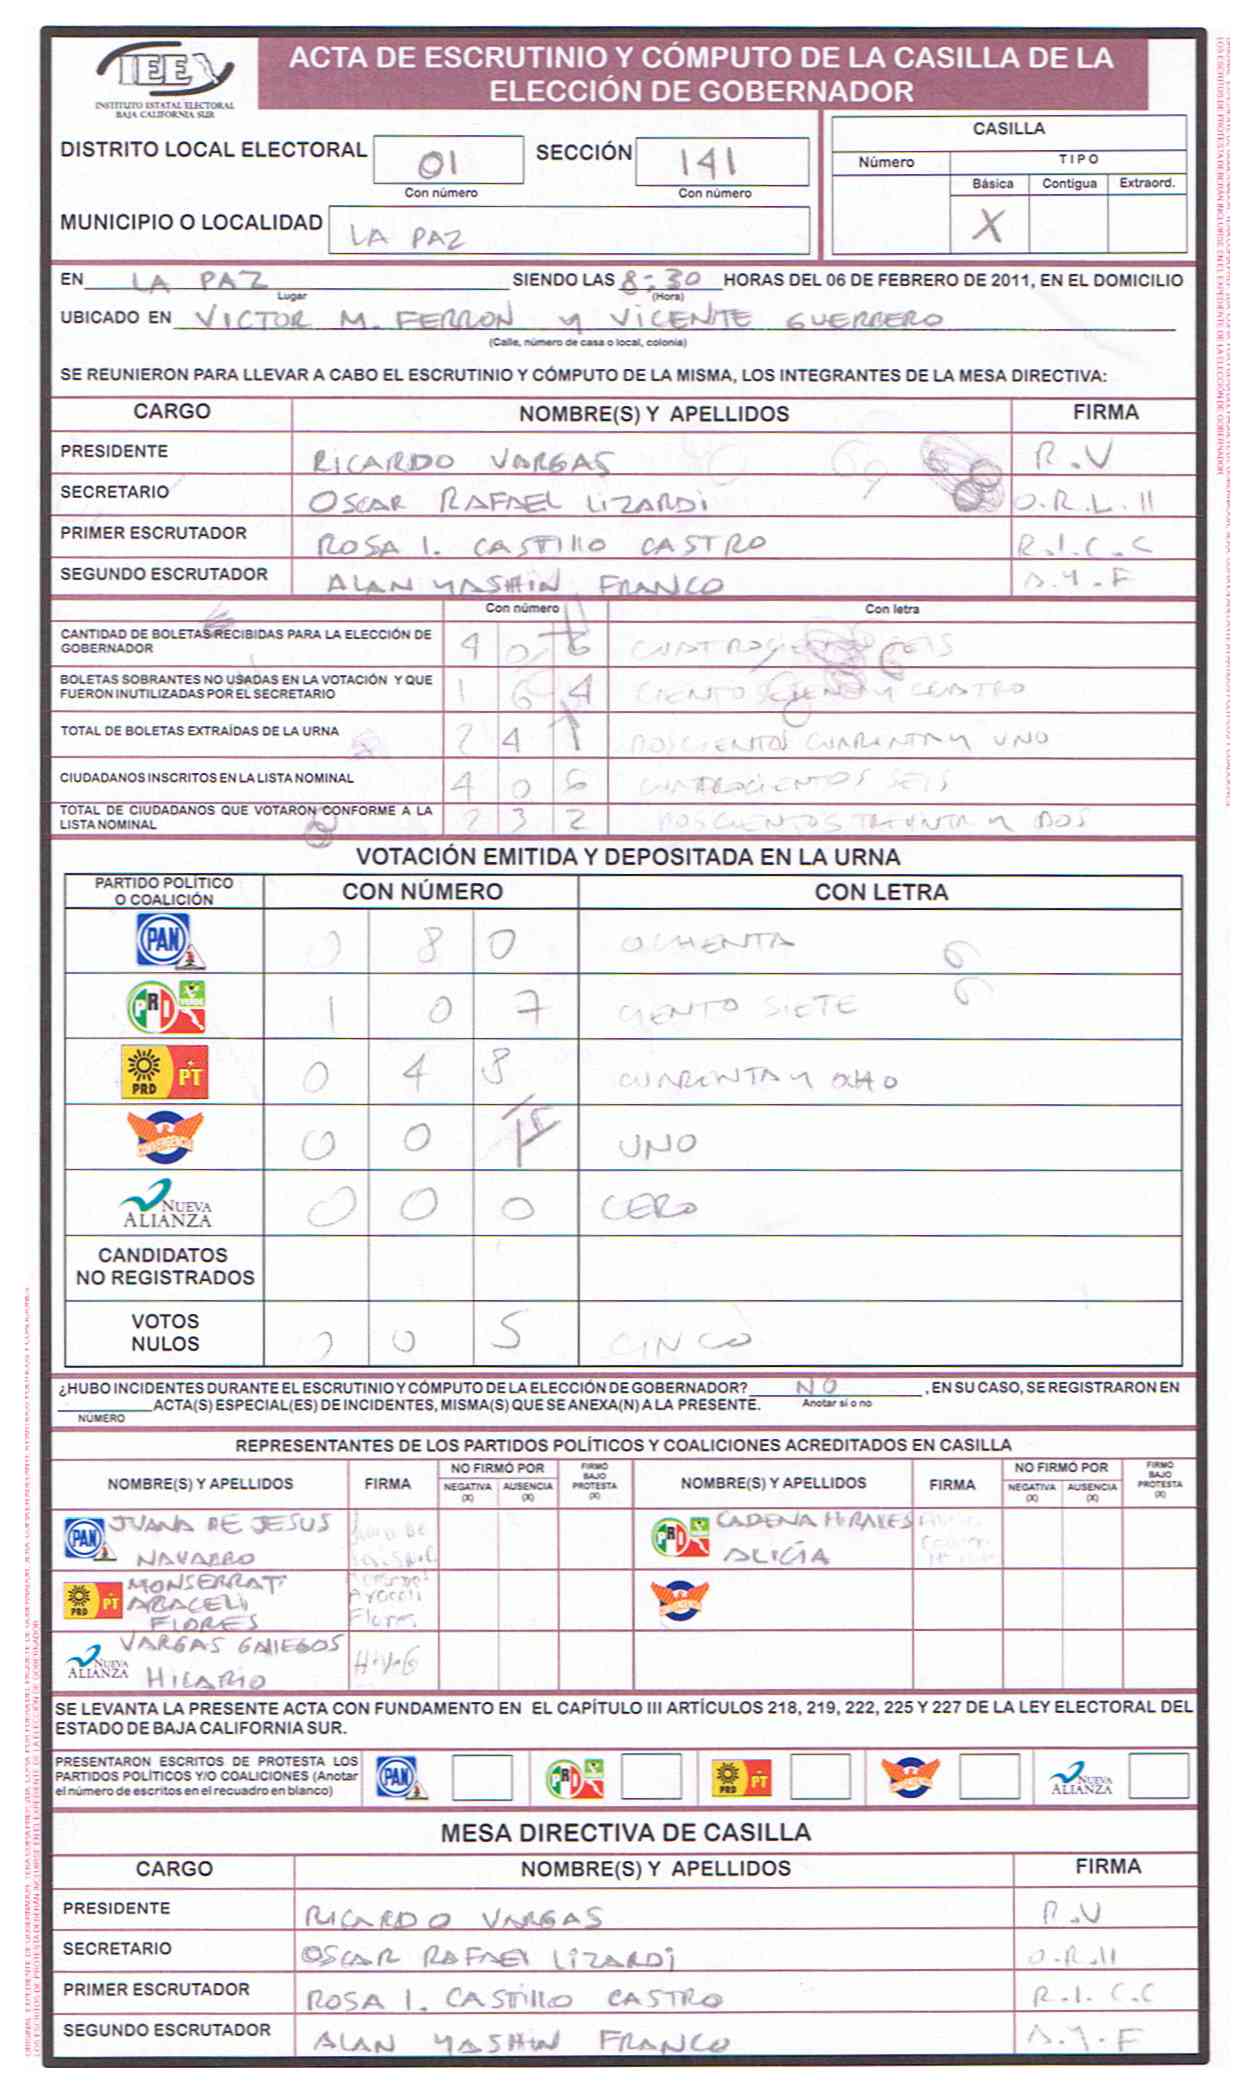 IEE
INSTITUTO ESTATAL ELECTORAL
BAJA CALIFORNIA SUR
ACTA DE ESCRUTINIO Y CÓMPUTO DE LA CASILLA DE LA
ELECCIÓN DE GOBERNADOR
DISTRITO LOCAL ELECTORAL 01 SECCIÓN 141
Con número Con número
MUNICIPIO O LOCALIDAD LA PAZ
CASILLA
Número TIPO
Básica Contigua Extraord.
X
EN LA PAZ SIENDO LAS 8:30 HORAS DEL 06 DE FEBRERO DE 2011, EN EL DOMICILIO
Lugar (Hora)
UBICADO EN VICTOR M. FERRON Y VICENTE GUERRERO
(Calle, número de casa o local, colonia)
SE REUNIERON PARA LLEVAR A CABO EL ESCRUTINIO Y CÓMPUTO DE LA MISMA, LOS INTEGRANTES DE LA MESA DIRECTIVA:
CARGO NOMBRE(S) Y APELLIDOS FIRMA
PRESIDENTE RICARDO VARGAS R.V
SECRETARIO OSCAR RAFAEL LIZARDI O.R.L.II
PRIMER ESCRUTADOR ROSA I. CASTILLO CASTRO R.I.C.C
SEGUNDO ESCRUTADOR ALAN YASHIN FRANCO A.Y.F
Con número Con letra
CANTIDAD DE BOLETAS RECIBIDAS PARA LA ELECCIÓN DE
GOBERNADOR 4 0 6 CUATROCIENTOS SEIS
BOLETAS SOBRANTES NO USADAS EN LA VOTACIÓN Y QUE
FUERON INUTILIZADAS POR EL SECRETARIO 1 6 4 CIENTO SESENTA Y CUATRO
TOTAL DE BOLETAS EXTRAÍDAS DE LA URNA 2 4 1 DOSCIENTOS CUARENTA Y UNO
CIUDADANOS INSCRITOS EN LA LISTA NOMINAL 4 0 6 CUATROCIENTOS SEIS
TOTAL DE CIUDADANOS QUE VOTARON CONFORME A LA
LISTA NOMINAL 2 3 2 DOSCIENTOS TREINTA Y DOS
VOTACIÓN EMITIDA Y DEPOSITADA EN LA URNA
PARTIDO POLÍTICO
O COALICIÓN CON NÚMERO CON LETRA
PAN 0 8 0 OCHENTA
PRI VERDE 1 0 7 CIENTO SIETE
PRD PT 0 4 8 CUARENTA Y OCHO
CONVERGENCIA 0 0 1 UNO
NUEVA ALIANZA 0 0 0 CERO
CANDIDATOS
NO REGISTRADOS
VOTOS
NULOS 0 0 5 CINCO
¿HUBO INCIDENTES DURANTE EL ESCRUTINIO Y CÓMPUTO DE LA ELECCIÓN DE GOBERNADOR? NO , EN SU CASO, SE REGISTRARON EN
ACTA(S) ESPECIAL(ES) DE INCIDENTES, MISMA(S) QUE SE ANEXA(N) A LA PRESENTE. Anotar sí o no
NÚMERO
REPRESENTANTES DE LOS PARTIDOS POLÍTICOS Y COALICIONES ACREDITADOS EN CASILLA
NOMBRE(S) Y APELLIDOS FIRMA NO FIRMÓ POR NEGATIVA (X) AUSENCIA (X) FIRMÓ BAJO PROTESTA (X) NOMBRE(S) Y APELLIDOS FIRMA NO FIRMÓ POR NEGATIVA (X) AUSENCIA (X) FIRMÓ BAJO PROTESTA (X)
PAN JUANA DE JESUS NAVARRO
PRI CADENA MIRALES ALICIA
PRD PT MONSERRAT ARACELI FLORES
NUEVA ALIANZA VARGAS GALLEGOS HILARIO H.V.G
SE LEVANTA LA PRESENTE ACTA CON FUNDAMENTO EN EL CAPÍTULO III ARTÍCULOS 218, 219, 222, 225 Y 227 DE LA LEY ELECTORAL DEL
ESTADO DE BAJA CALIFORNIA SUR.
PRESENTARON ESCRITOS DE PROTESTA LOS
PARTIDOS POLÍTICOS Y/O COALICIONES (Anotar
el número de escritos en el recuadro en blanco) PAN PRI PRD PT NUEVA ALIANZA
MESA DIRECTIVA DE CASILLA
CARGO NOMBRE(S) Y APELLIDOS FIRMA
PRESIDENTE RICARDO VARGAS R.V
SECRETARIO OSCAR RAFAEL LIZARDI O.R.II
PRIMER ESCRUTADOR ROSA I. CASTILLO CASTRO R.I.C.C
SEGUNDO ESCRUTADOR ALAN YASHIN FRANCO A.Y.F